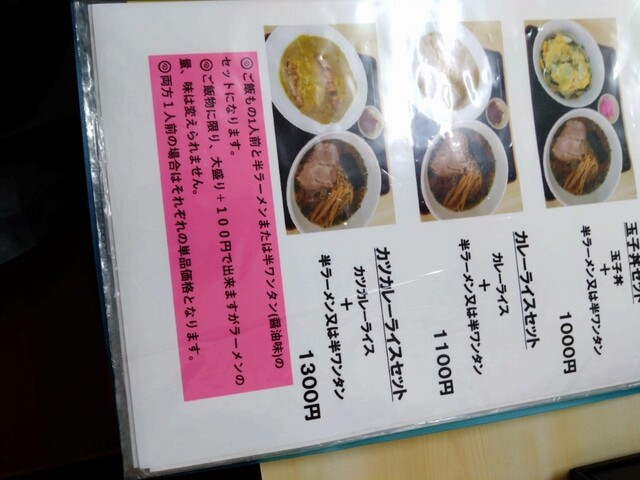 玉子丼セット
玉子丼
+
半ラーメン又は半ワンタン
1000円
カレーライスセット
カレーライス
+
半ラーメン又は半ワンタン
1100円
カツカレーライスセット
カツカレーライス
+
半ラーメン又は半ワンタン
1300円
◎ご飯もの1人前と半ラーメンまたは半ワンタン(醤油味)の
セットになります。
◎ご飯物に限り、大盛り+100円で出来ますがラーメンの
量、味は変えられません。
◎両方1人前の場合はそれぞれの単品価格となります。